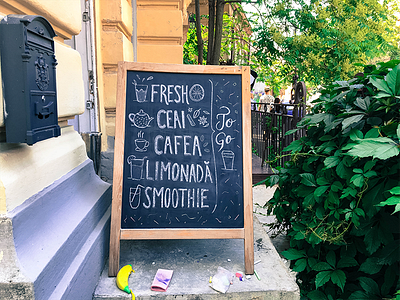 FRESH
CEAI
CAFEA
LIMONADĂ
SMOOTHIE
To Go